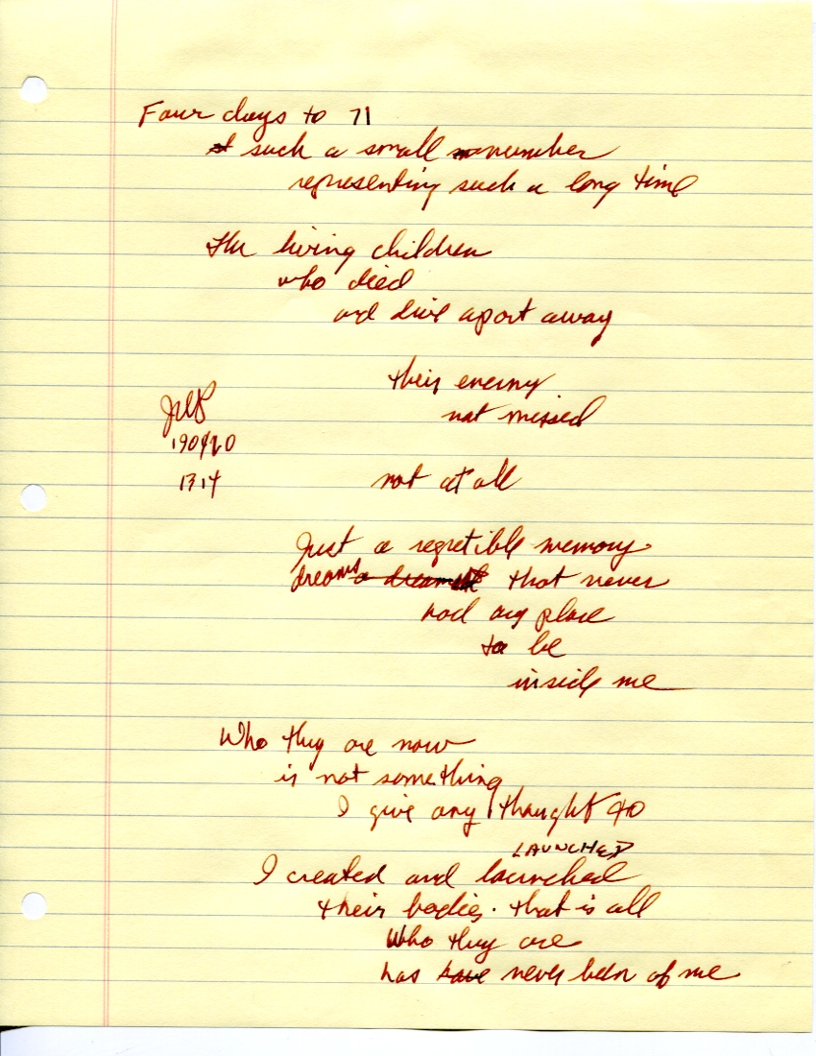 Four days to 71
such a small number
representing such a long time
The living children
who died
and live apart away
their enemy
not missed
190420
1314
not at all
Just a regretible memory
dreams a dream that never
had any place
to be
inside me
Who they are now
is not something
I give any thought to
LAUNCHED
I created and launched
their bodies. that is all
Who they are
has have never been of me